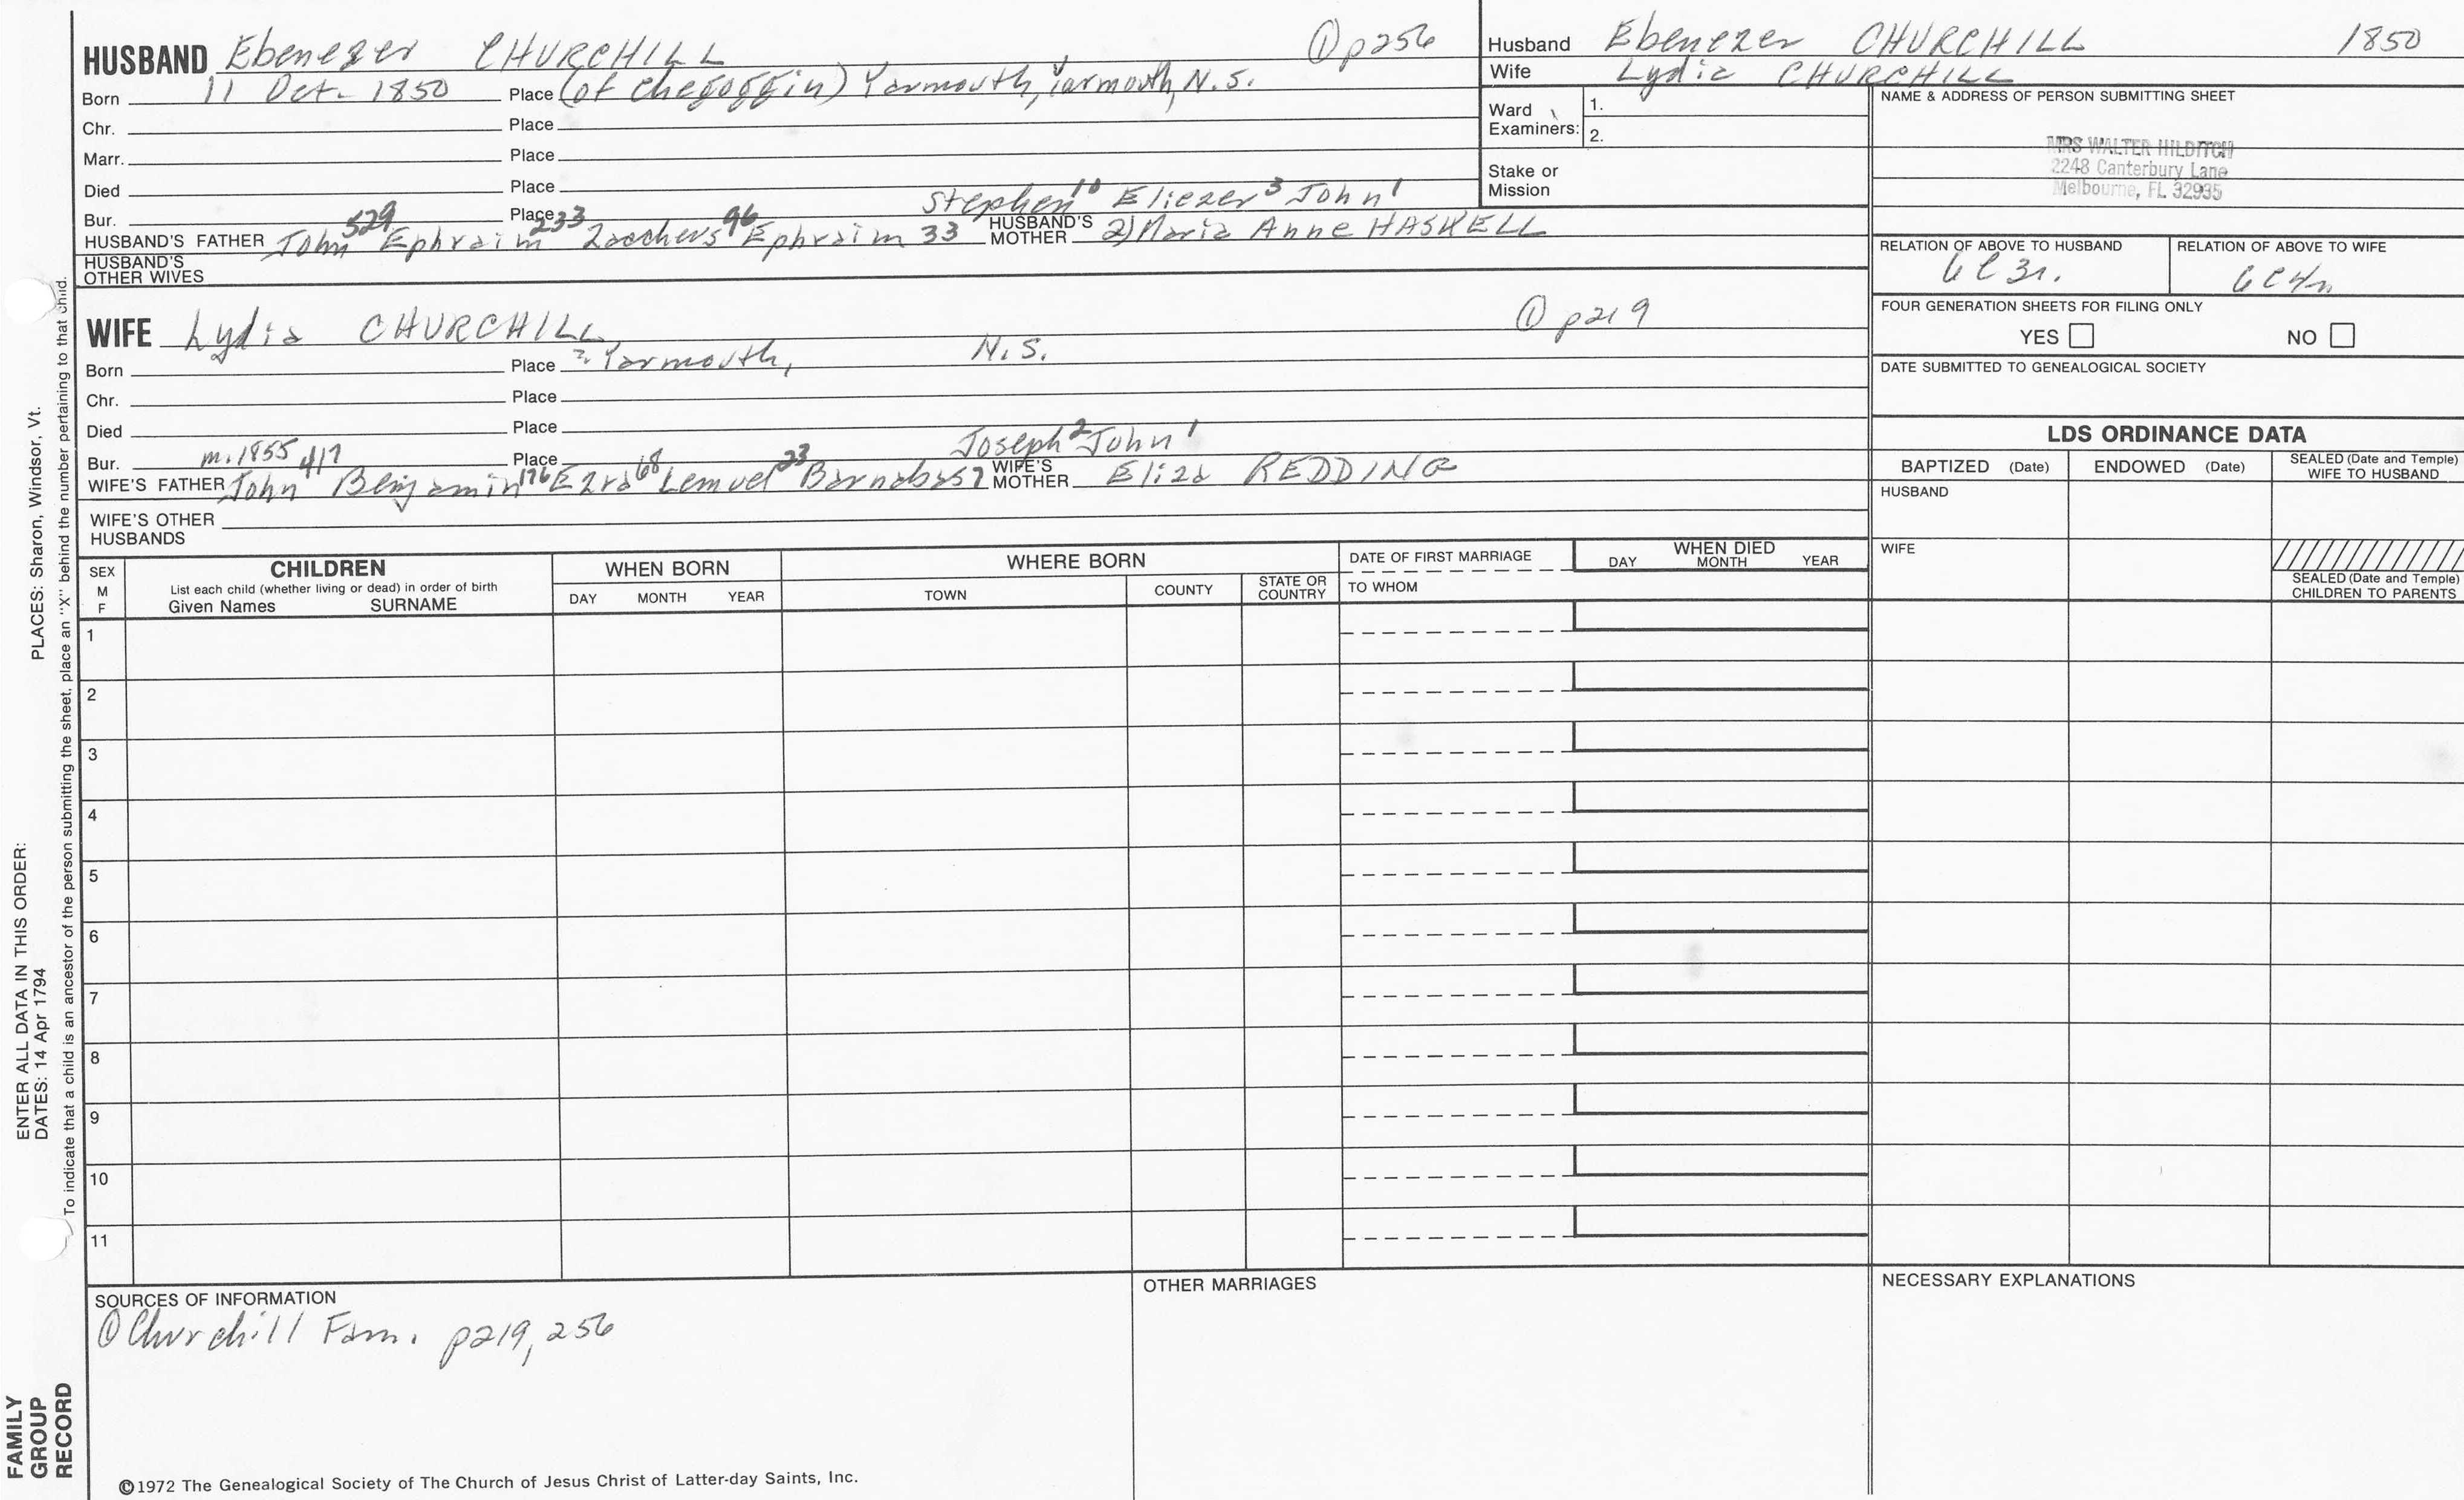 HUSBAND Ebenezer CHURCHILL ① p256
Born 11 Oct. 1850 Place (of Chegoggin) Yarmouth, Yarmouth, N.S.
Chr. Place
Marr. Place
Died Place
Stephen 10 Eliezer 3 John 1
Bur. Place
529 233 96
HUSBAND'S FATHER John Ephraim Zaccheus Ephraim 33 HUSBAND'S MOTHER 2) Maria Anne HASKELL
HUSBAND'S OTHER WIVES
WIFE Lydia CHURCHILL ① p219
Born Place ? Yarmouth, N.S.
Chr. Place
Died Place
Joseph 2 John 1
Bur. m. 1855 Place
417 176 68 23
WIFE'S FATHER John Benjamin Ezra Lemuel Barnabas 7 WIFE'S MOTHER Eliza REDDING
WIFE'S OTHER HUSBANDS
Husband Ebenezer CHURCHILL 1850
Wife Lydia CHURCHILL
Ward Examiners: 1.
2.
Stake or Mission
NAME & ADDRESS OF PERSON SUBMITTING SHEET
MRS WALTER HILDITCH
2248 Canterbury Lane
Melbourne, FL 32935
RELATION OF ABOVE TO HUSBAND RELATION OF ABOVE TO WIFE
6C3r. 6C4r
FOUR GENERATION SHEETS FOR FILING ONLY
YES NO
DATE SUBMITTED TO GENEALOGICAL SOCIETY
LDS ORDINANCE DATA
BAPTIZED (Date) ENDOWED (Date) SEALED (Date and Temple) WIFE TO HUSBAND
HUSBAND
WIFE
SEALED (Date and Temple) CHILDREN TO PARENTS
SEX M F
CHILDREN
List each child (whether living or dead) in order of birth
Given Names SURNAME
WHEN BORN
DAY MONTH YEAR
WHERE BORN
TOWN COUNTY STATE OR COUNTRY
DATE OF FIRST MARRIAGE
TO WHOM
WHEN DIED
DAY MONTH YEAR
1
2
3
4
5
6
7
8
9
10
11
SOURCES OF INFORMATION
① Churchill Fam. p219, 256
OTHER MARRIAGES
NECESSARY EXPLANATIONS
©1972 The Genealogical Society of The Church of Jesus Christ of Latter-day Saints, Inc.
ENTER ALL DATA IN THIS ORDER:
DATES: 14 Apr 1794 PLACES: Sharon, Windsor, Vt.
To indicate that a child is an ancestor of the person submitting the sheet, place an "X" behind the number pertaining to that child.
FAMILY
GROUP
RECORD